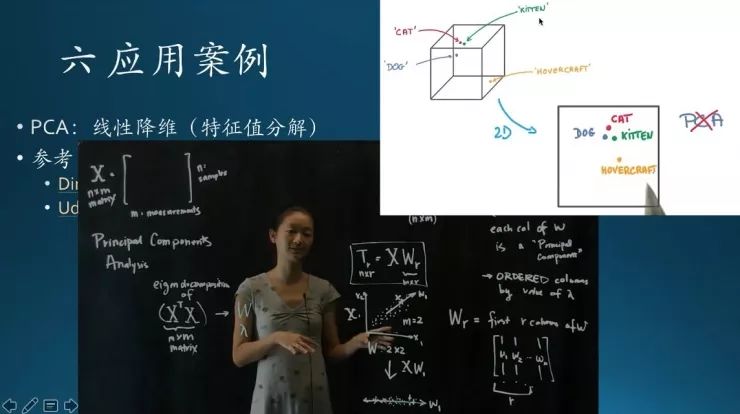 六 应用案例
• PCA：线性降维（特征值分解）
• 参考
• Dir
• Ud
'KITTEN'
'CAT'
'DOG'
'HOVERCRAFT'
2D
CAT
DOG
KITTEN
HOVERCRAFT
PCA
X =
n×m
matrix
n: samples
m: measurements
Principal Components
Analysis
eigendecomposition
of
(XᵀX)
m×m
matrix
→ W
λ
(n×m)
Tr = XWr
n×r
m×r
x₂
W₁
X:
m=2
x₁
W = 2×2
↓ XW,
W₁
each col of W
is a "Principal
Component"
→ ORDERED columns
by value of λ
Wr = first r columns of W
r